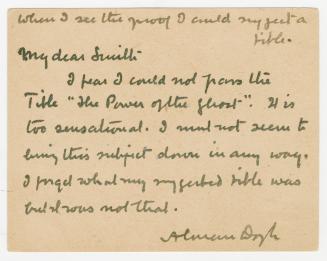 when I see the proof I could suggest a
title.
My dear Smith
I fear I could not pass the
Title "The Power of the Ghost". It is
too sensational. I must not seem to
bring this subject down in any way.
I forget what my suggested title was
but it was not that.
A Conan Doyle